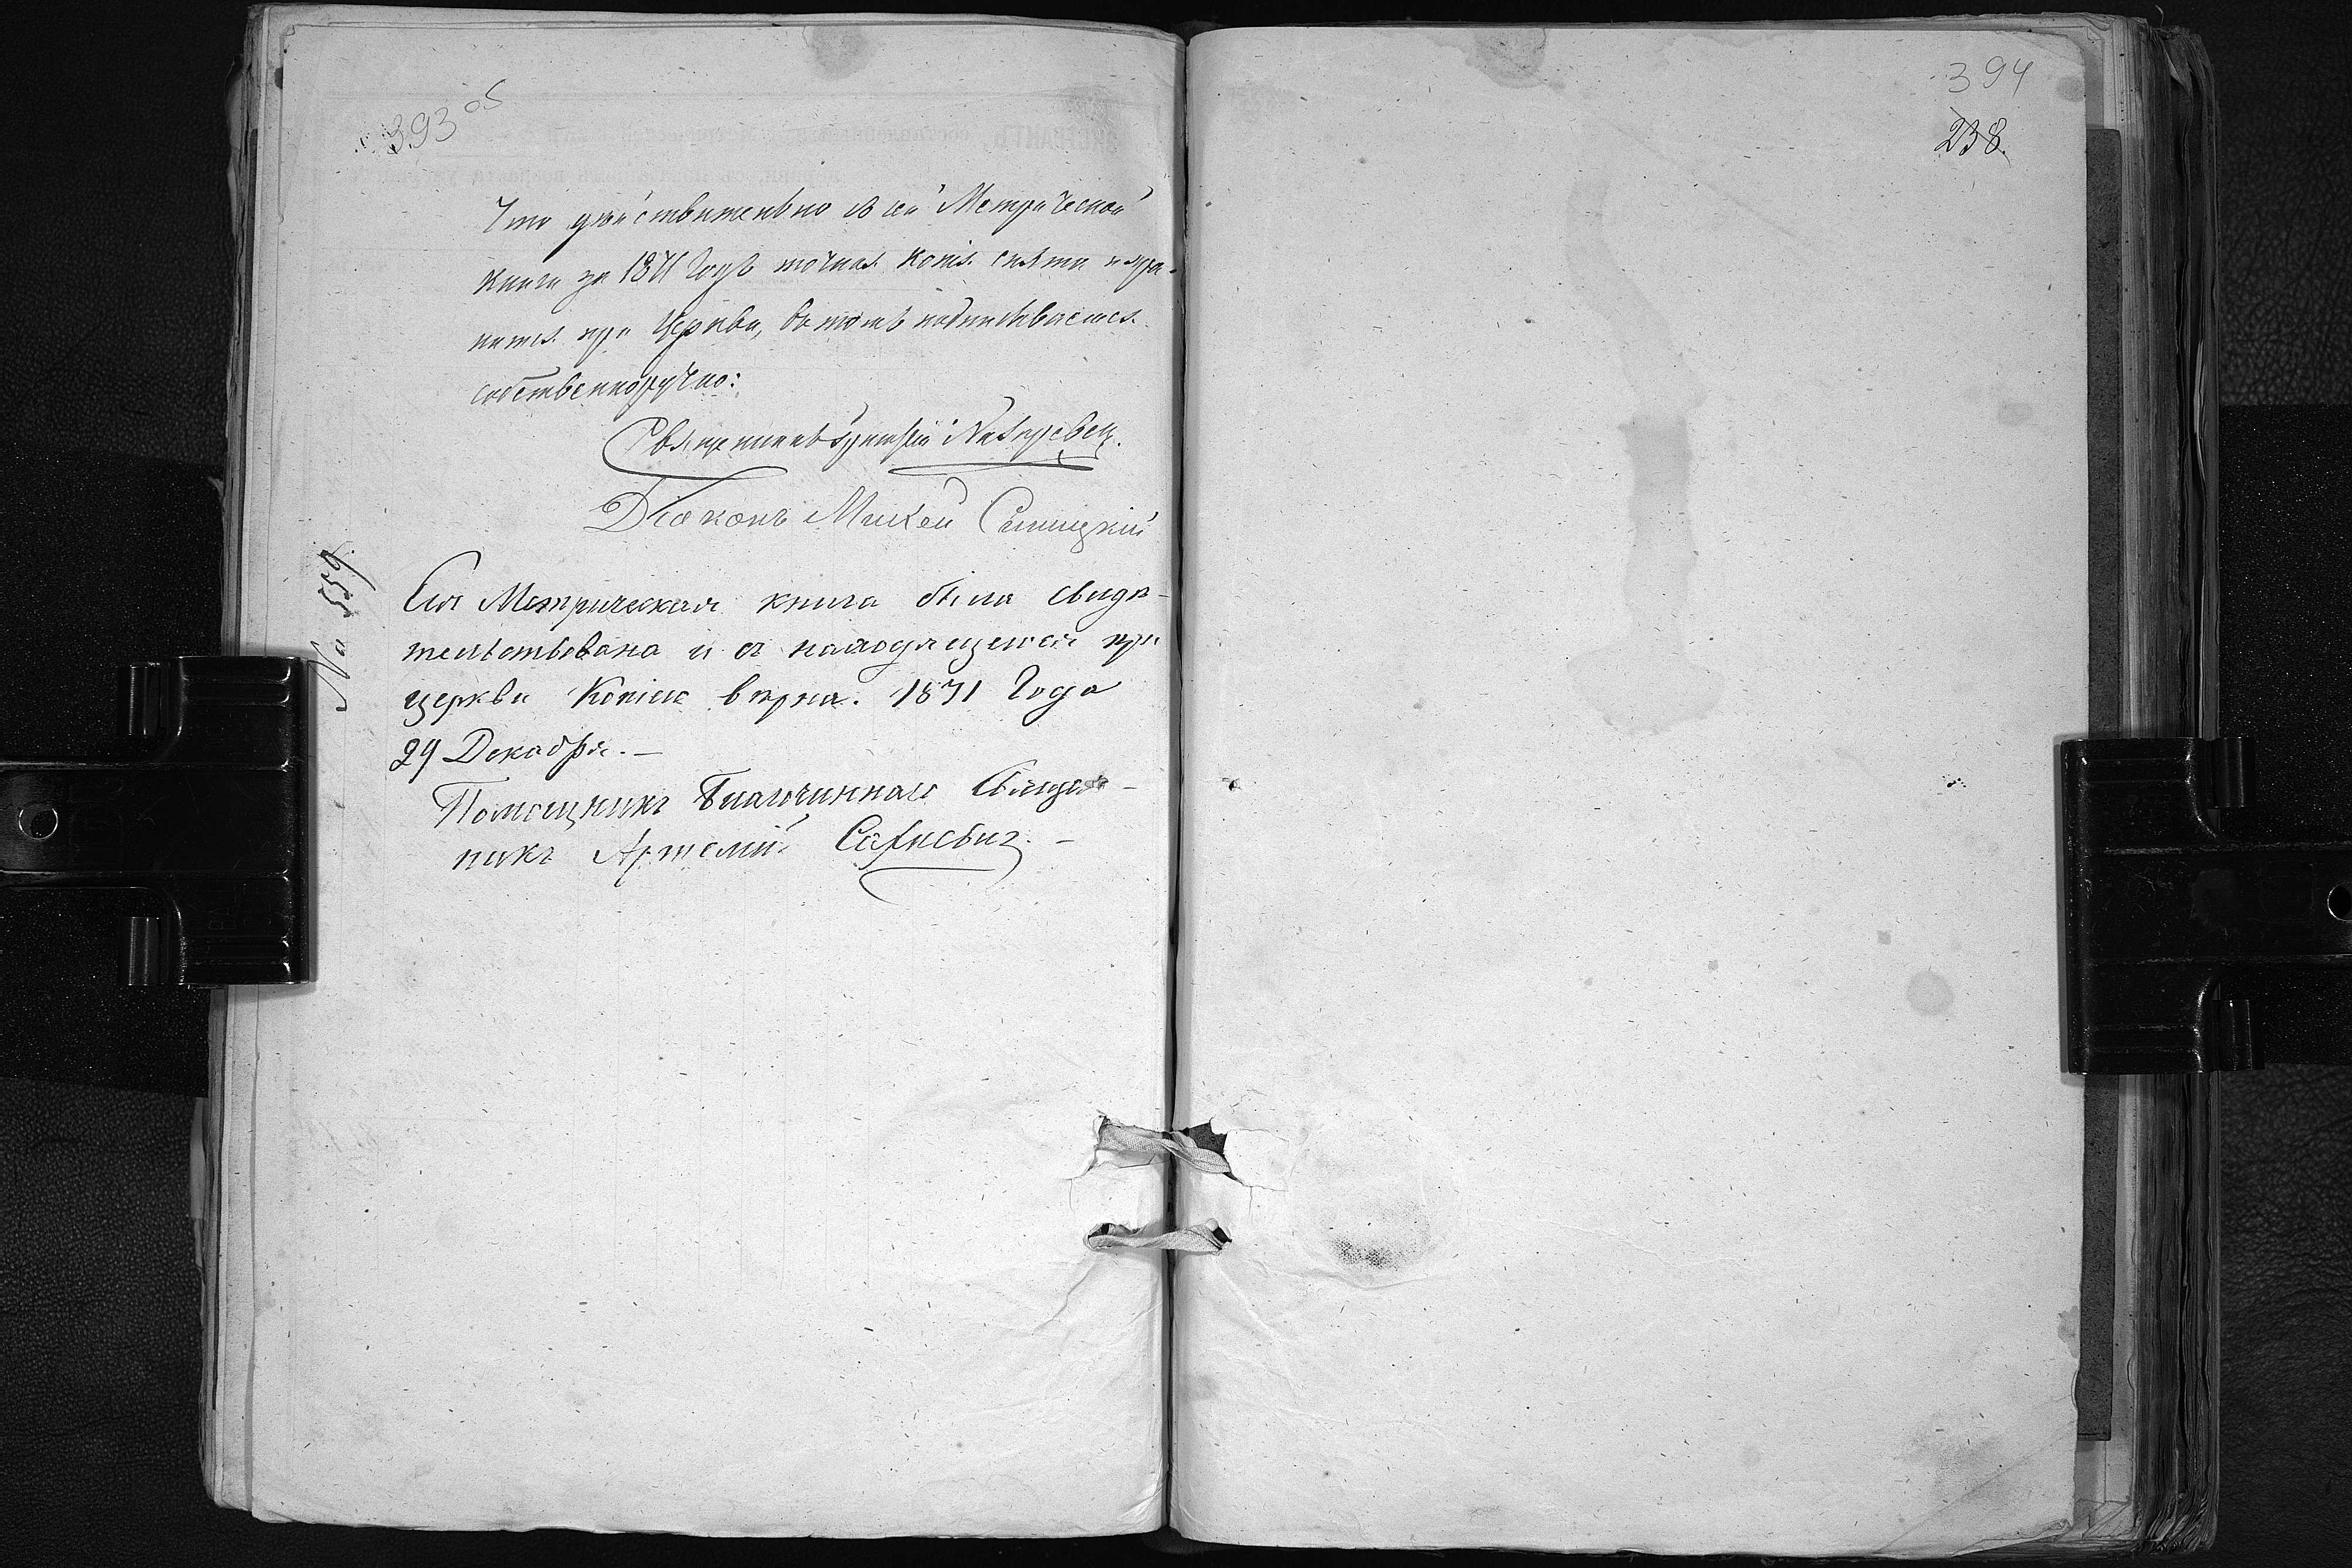 393 об
Что действительно въ сей Метрической
книги за 1871 годъ точная копія снята и хра-
нится при Церкви, въ томъ подписываемся
собственноручно:
Священникъ
Діаконъ Михей Синицкій
№ 559.
Сія Метрическая книга была свидѣ-
тельствована и съ находящеюся при
церкви Копіею вѣрна. 1871 Года
29 Декабря. —
Помощникъ Благочиннаго Священ-
никъ Артемій Сахневич. —
394
238.